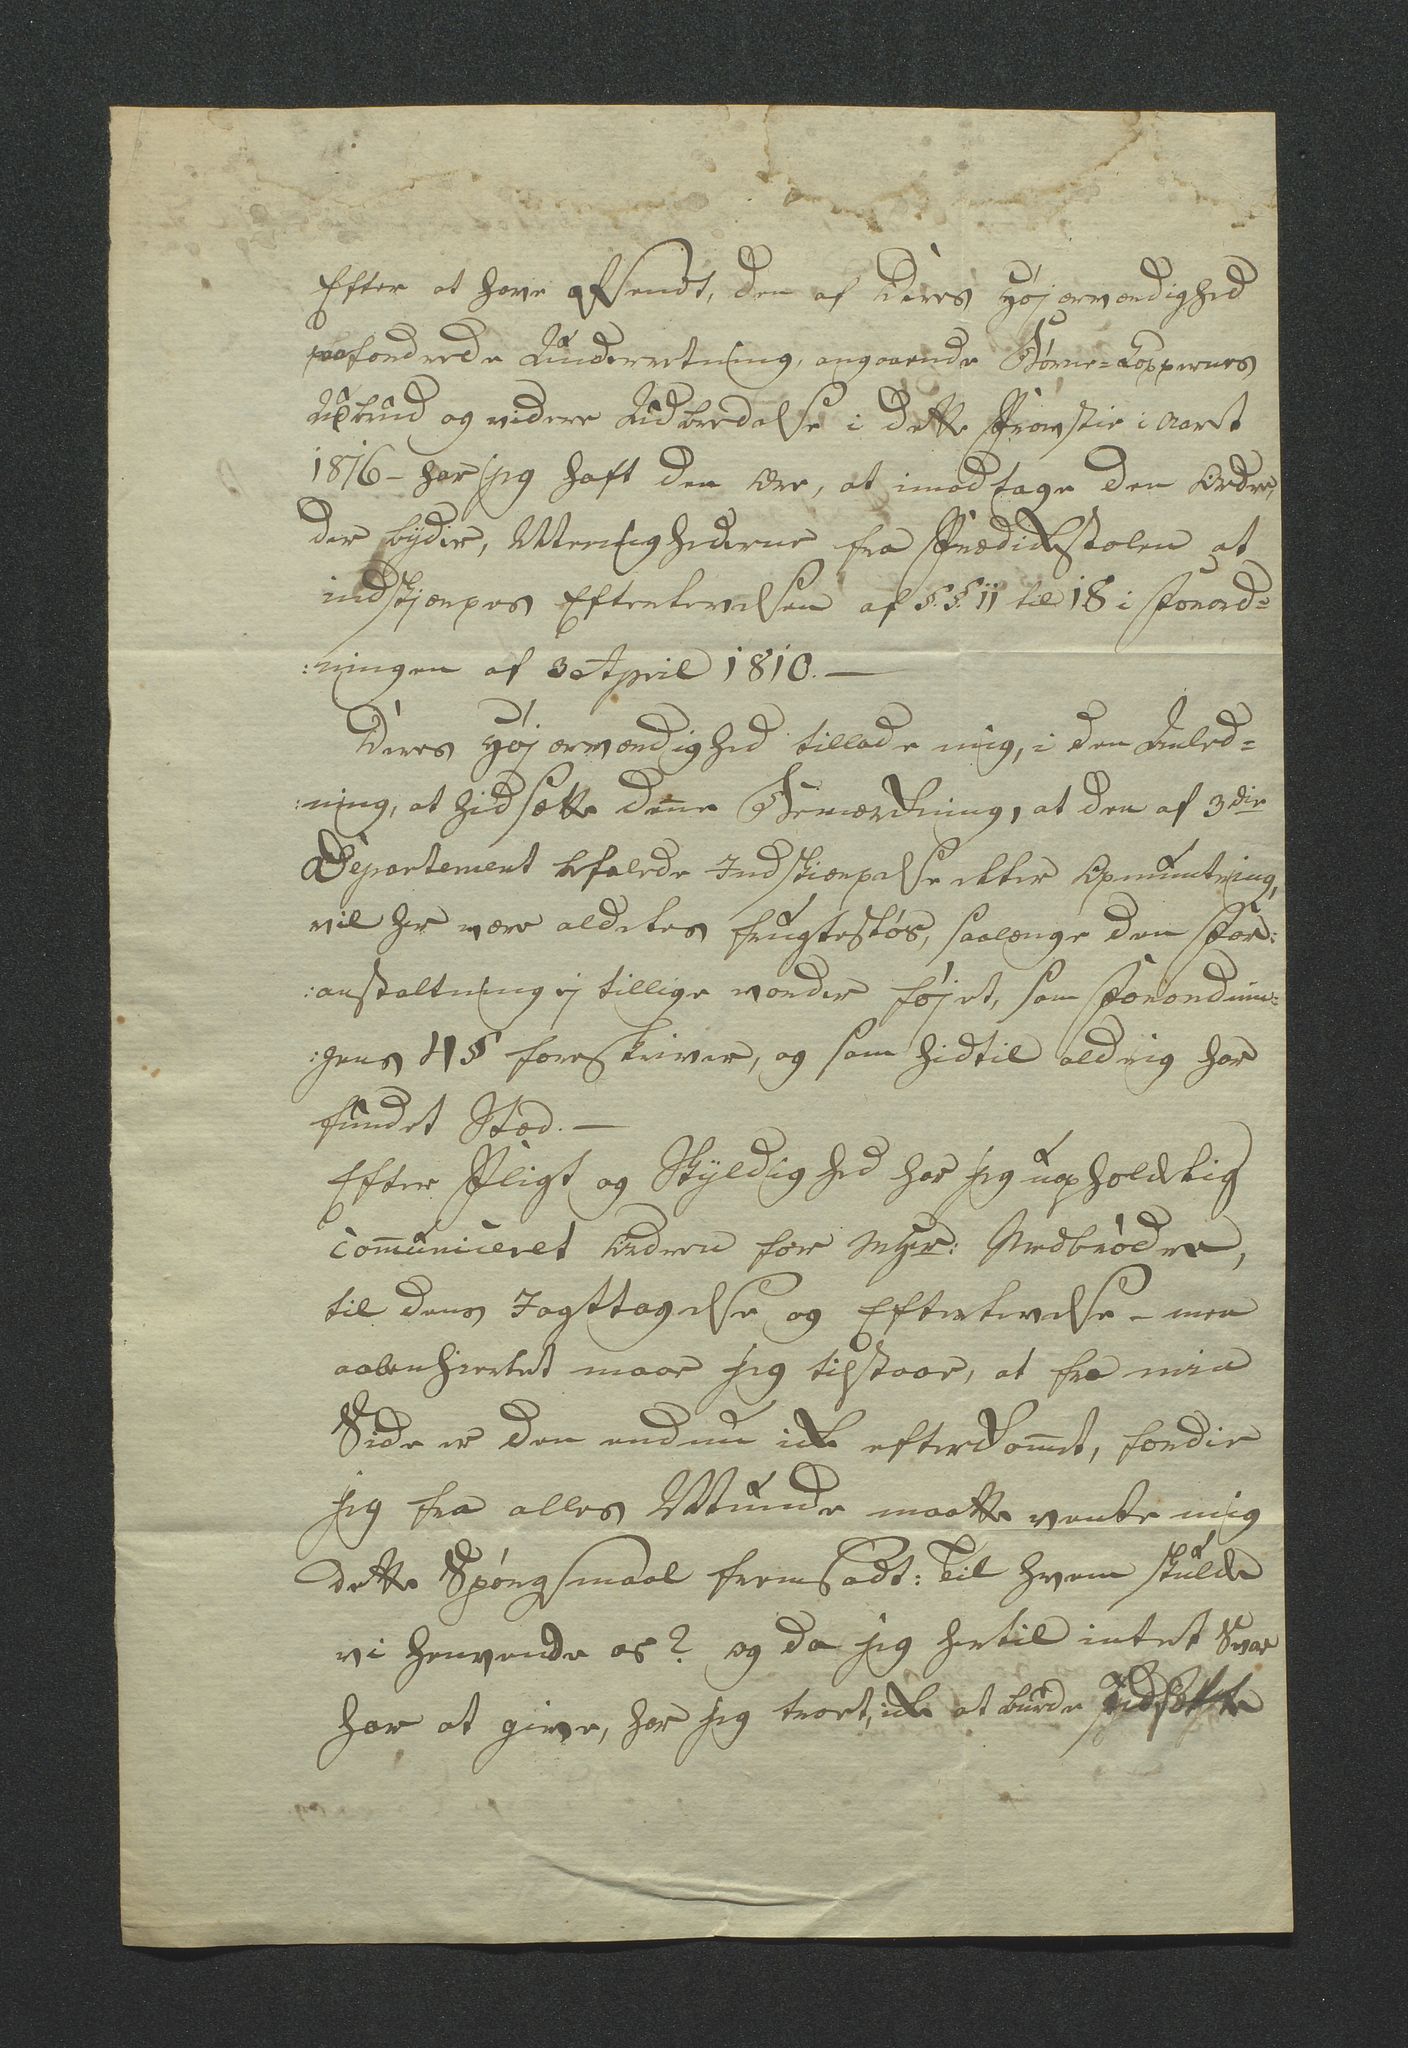 Efter at have afsendt, den af Deres Høj ærværdighed
paafordrede Underretning, angaaende Børne=Koppernes
Udbrud og videre Udbredelse i dette Provstie i Aaret
1816 - har jeg haft den Ære, at imodtage den Ordre,
der byder, Menighederne fra Prædikestolen at
indskjærpes Efterlevelsen af §.§. 11 til 18 i Forord=
:ningen af 3 April 1810. —
Deres Høj ærværdighed tillade mig, i den Anled=
:ning, at hidsætte denne Bemærkning, at den af 3die
Departement befalede Indskiærpelse eller Opmuntring,
vil her være aldeles frugtesløs, saalænge den For:
:anstaltning ej tillige vorder føjet, som Forordnin=
:gens 4 § foreskriver, og som hidtil aldrig har
fundet Stæd. —
Efter Pligt og Skyldighed har jeg uopholdelig
communiceret Ordren for mHr: Medbrødre,
til dens Iagttagelse og Efterlevelse - men
aabenhiertet maae jeg tilstaae, at fra min
Side er den endnu ikke efterkommet, fordie
jeg fra alles Munde maatte vente mig
dette Spørgsmaal fremsadt: Til hvem skulde
vi henvende os? og da jeg hertil intet Svar
har at give, har jeg troet, ikke at burde